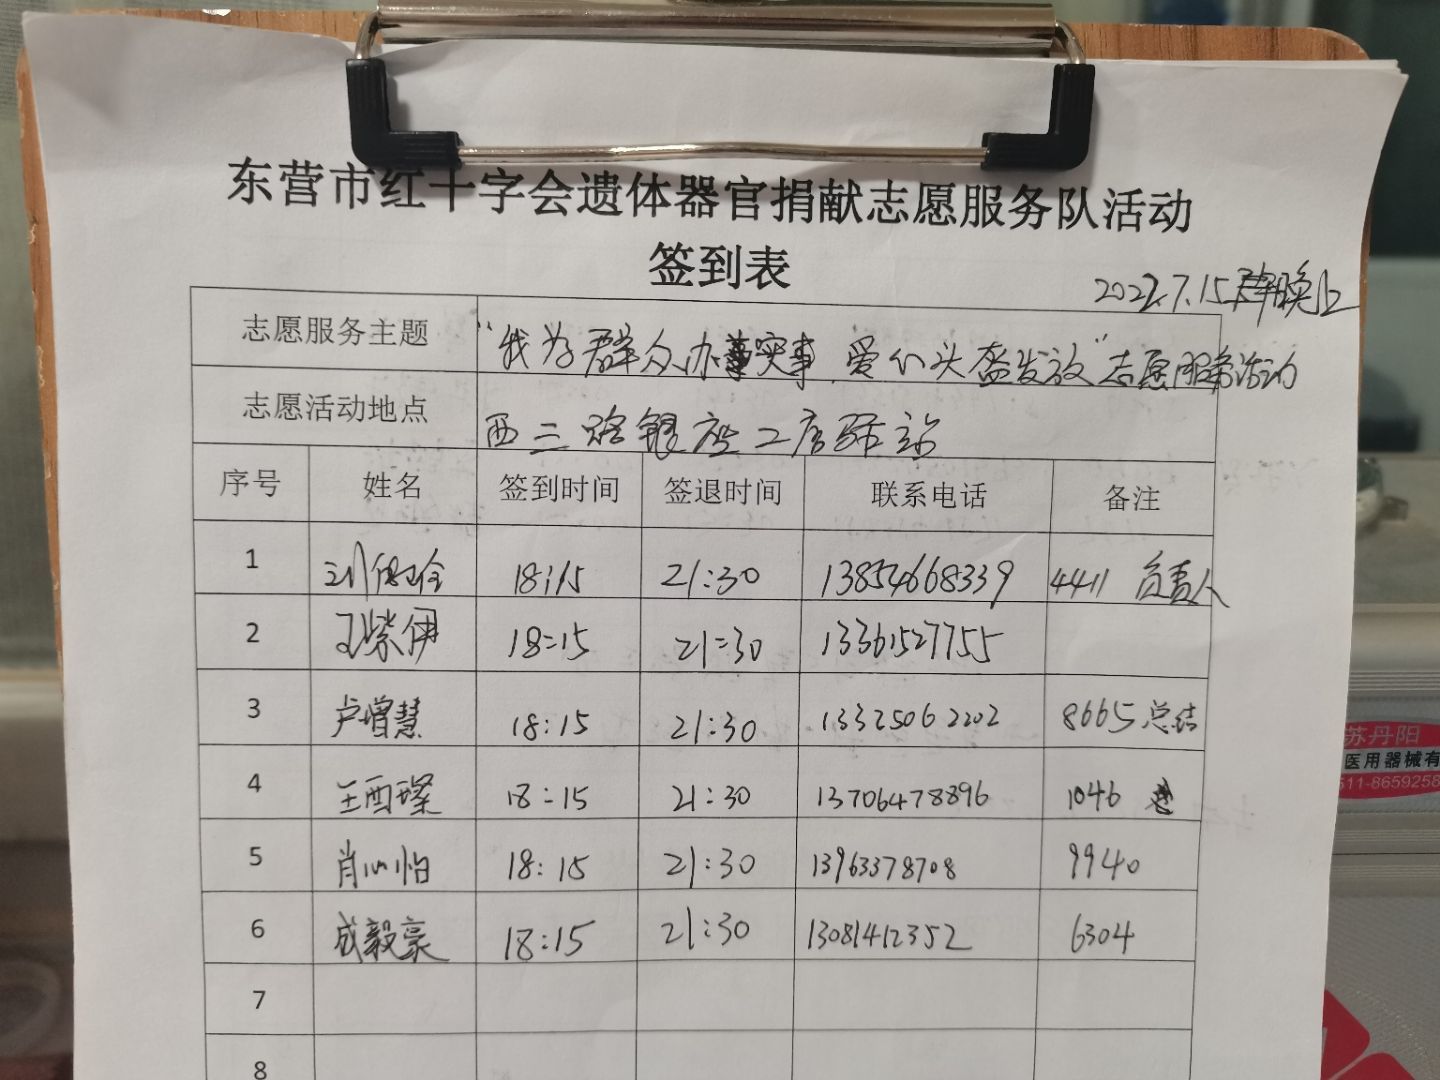 东营市红十字会遗体器官捐献志愿服务队活动
签到表
2022.7.15 晚上
志愿服务主题 "我为群众办实事 爱心头盔发放"志愿服务活动
志愿活动地点 西二路银座工店驿站
序号 姓名 签到时间 签退时间 联系电话 备注
1 18:15 21:30 13854668339 4411 负责人
2 王紫伊 18:15 21:30 13361527755
3 卢增慧 18:15 21:30 13325062202 8665 总结
4 王西璨 18:15 21:30 13706478896 1046
5 肖心怡 18:15 21:30 13963378708 9940
6 成毅豪 18:15 21:30 13081412352 6304
7
8
苏丹阳
医用器械有
511-8659258